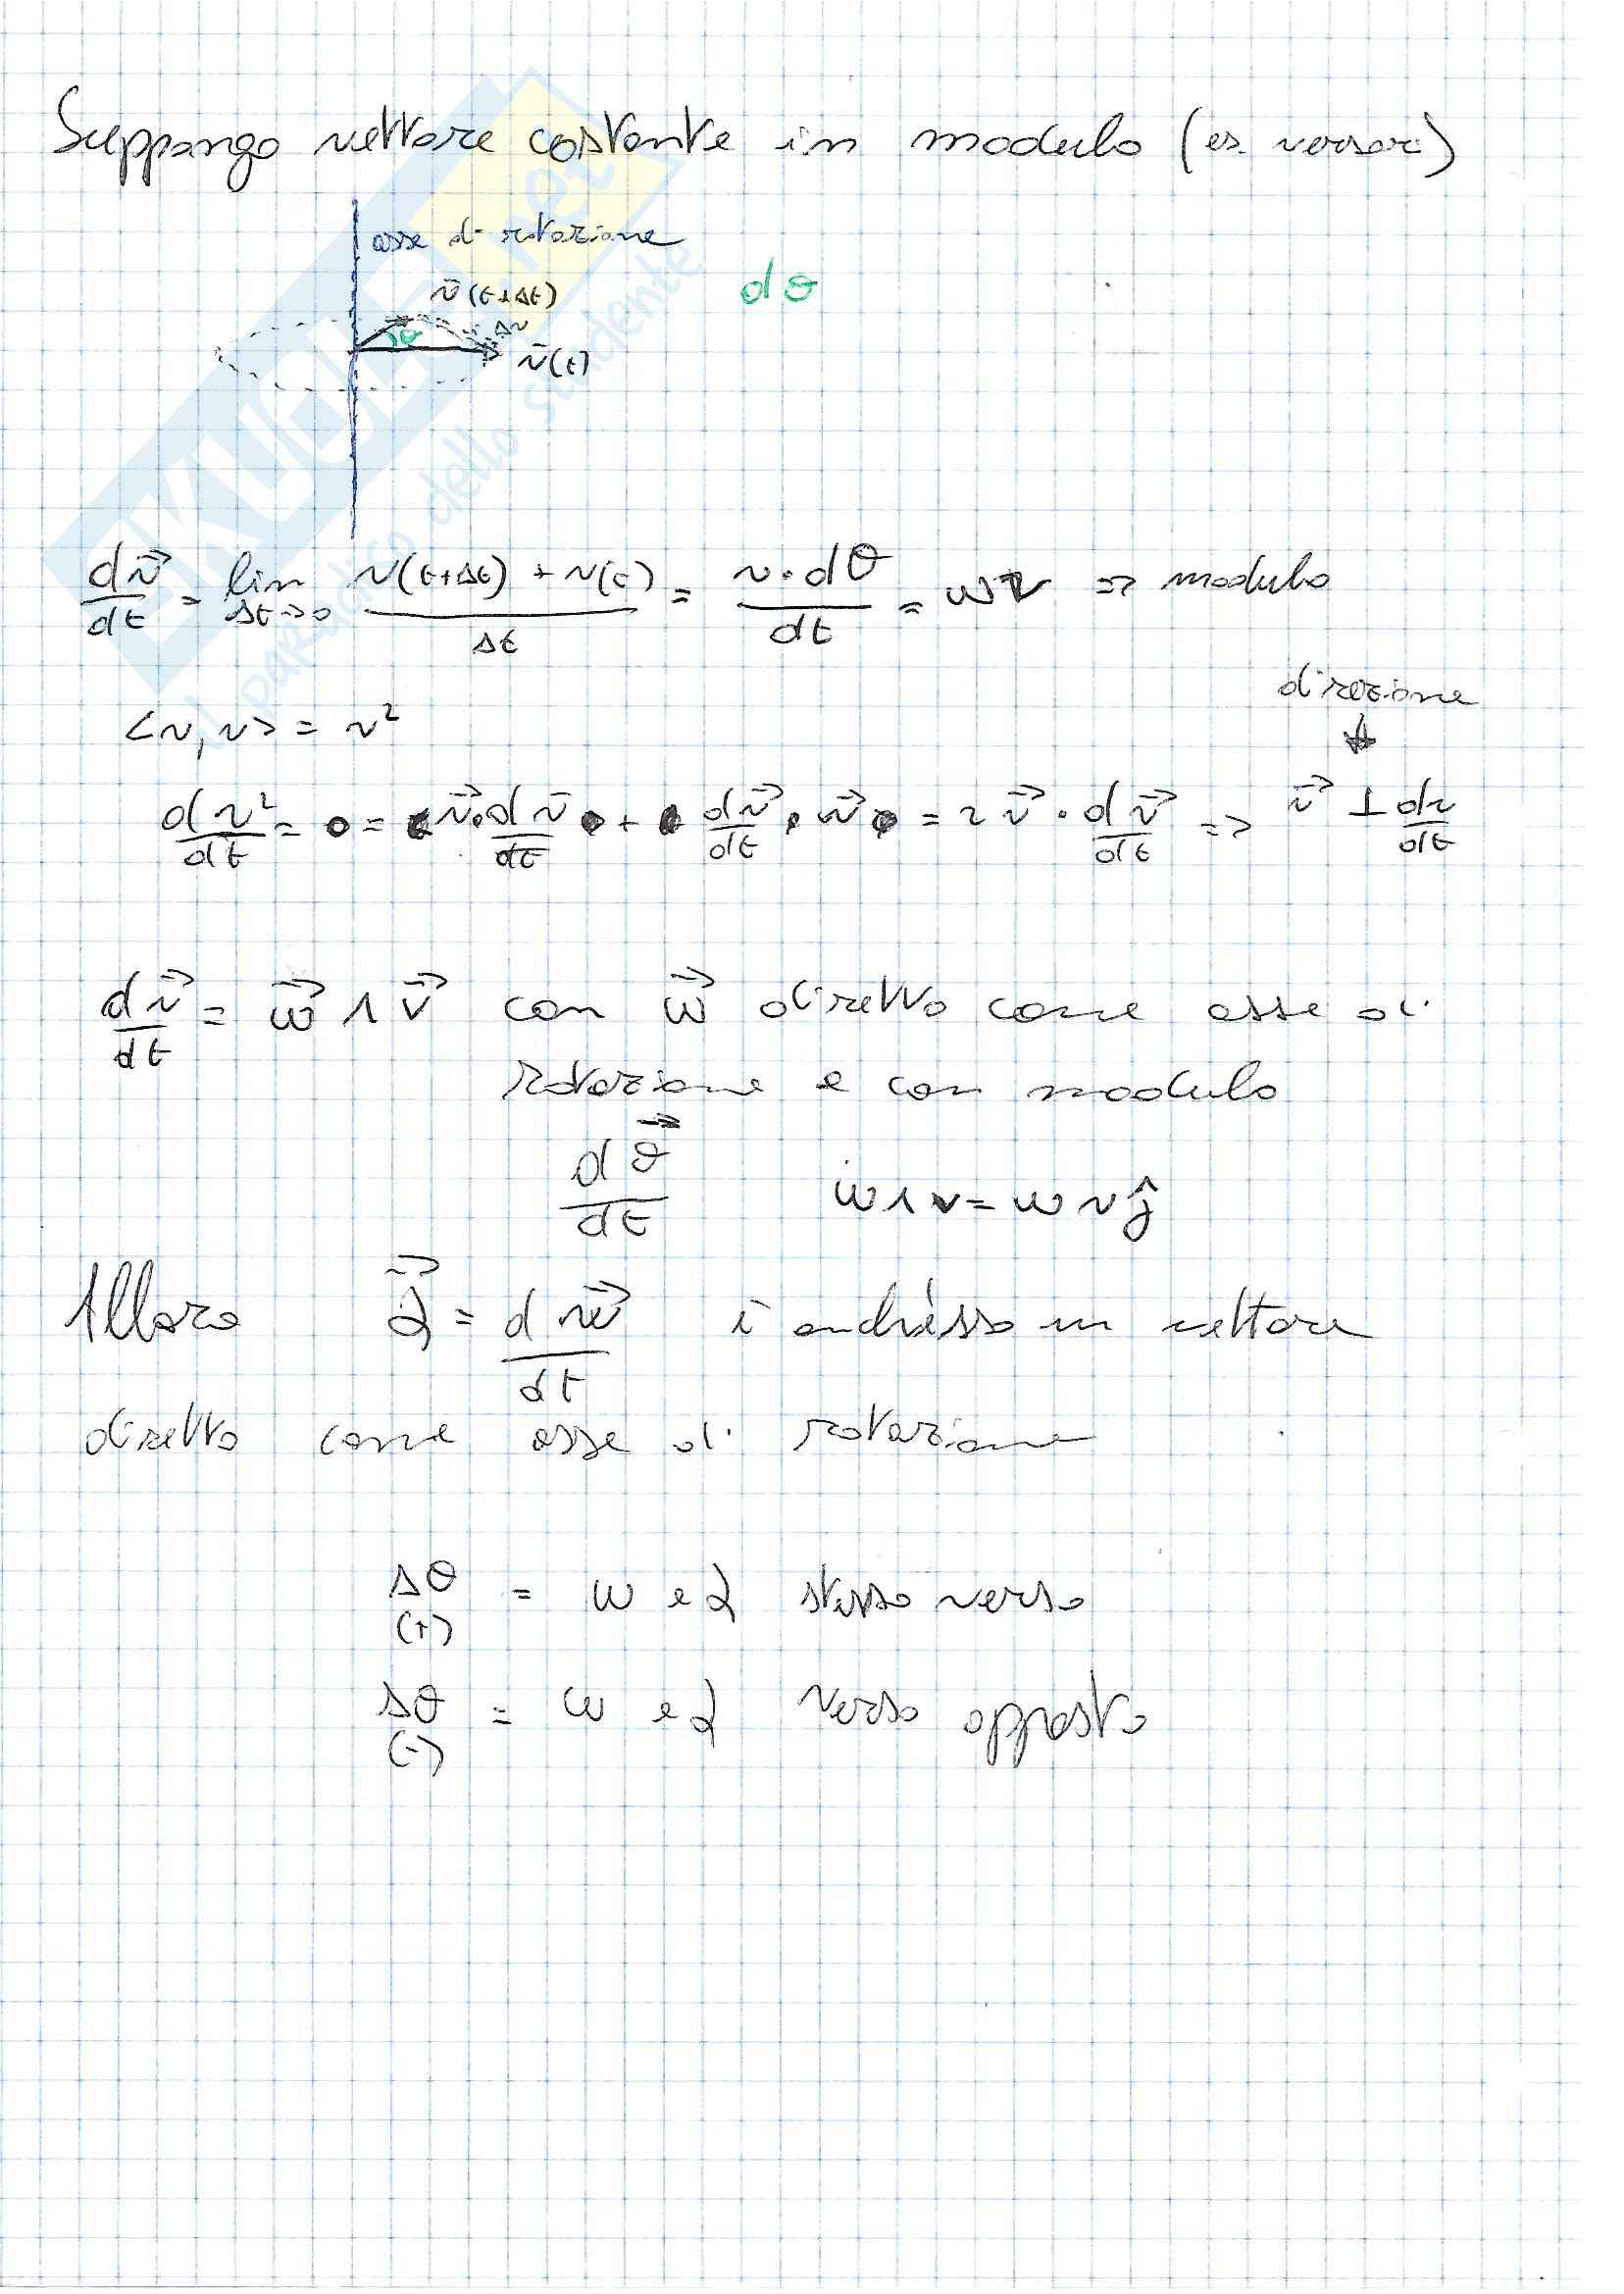 Suppongo vettore costante in modulo (es. versori)
asse di rotazione
v̄(t+Δt)
dθ
Δv
dθ
v̄(t)
dv⃗/dt = lim Δt→0 (v(t+Δt) + v(t))/Δt = v·dθ/dt = ωv => modulo
direzione
<v, v> = v²
dv²/dt = 0 = v⃗·dv̄/dt + dv⃗/dt·v⃗ = 2 v⃗·dv⃗/dt => v⃗ ⊥ dv/dt
dv⃗/dt = ω⃗ ∧ v⃗ con ω⃗ diretto come asse di
rotazione e con modulo
dθ⃗/dt ω∧v = ω v ĵ
Allora α⃗ = dω⃗/dt è anch'esso un vettore
diretto come asse di rotazione
Δθ (+) = ω e α stesso verso
Δθ (-) = ω e α verso opposto
SKUOLA.net
il paradiso dello studente